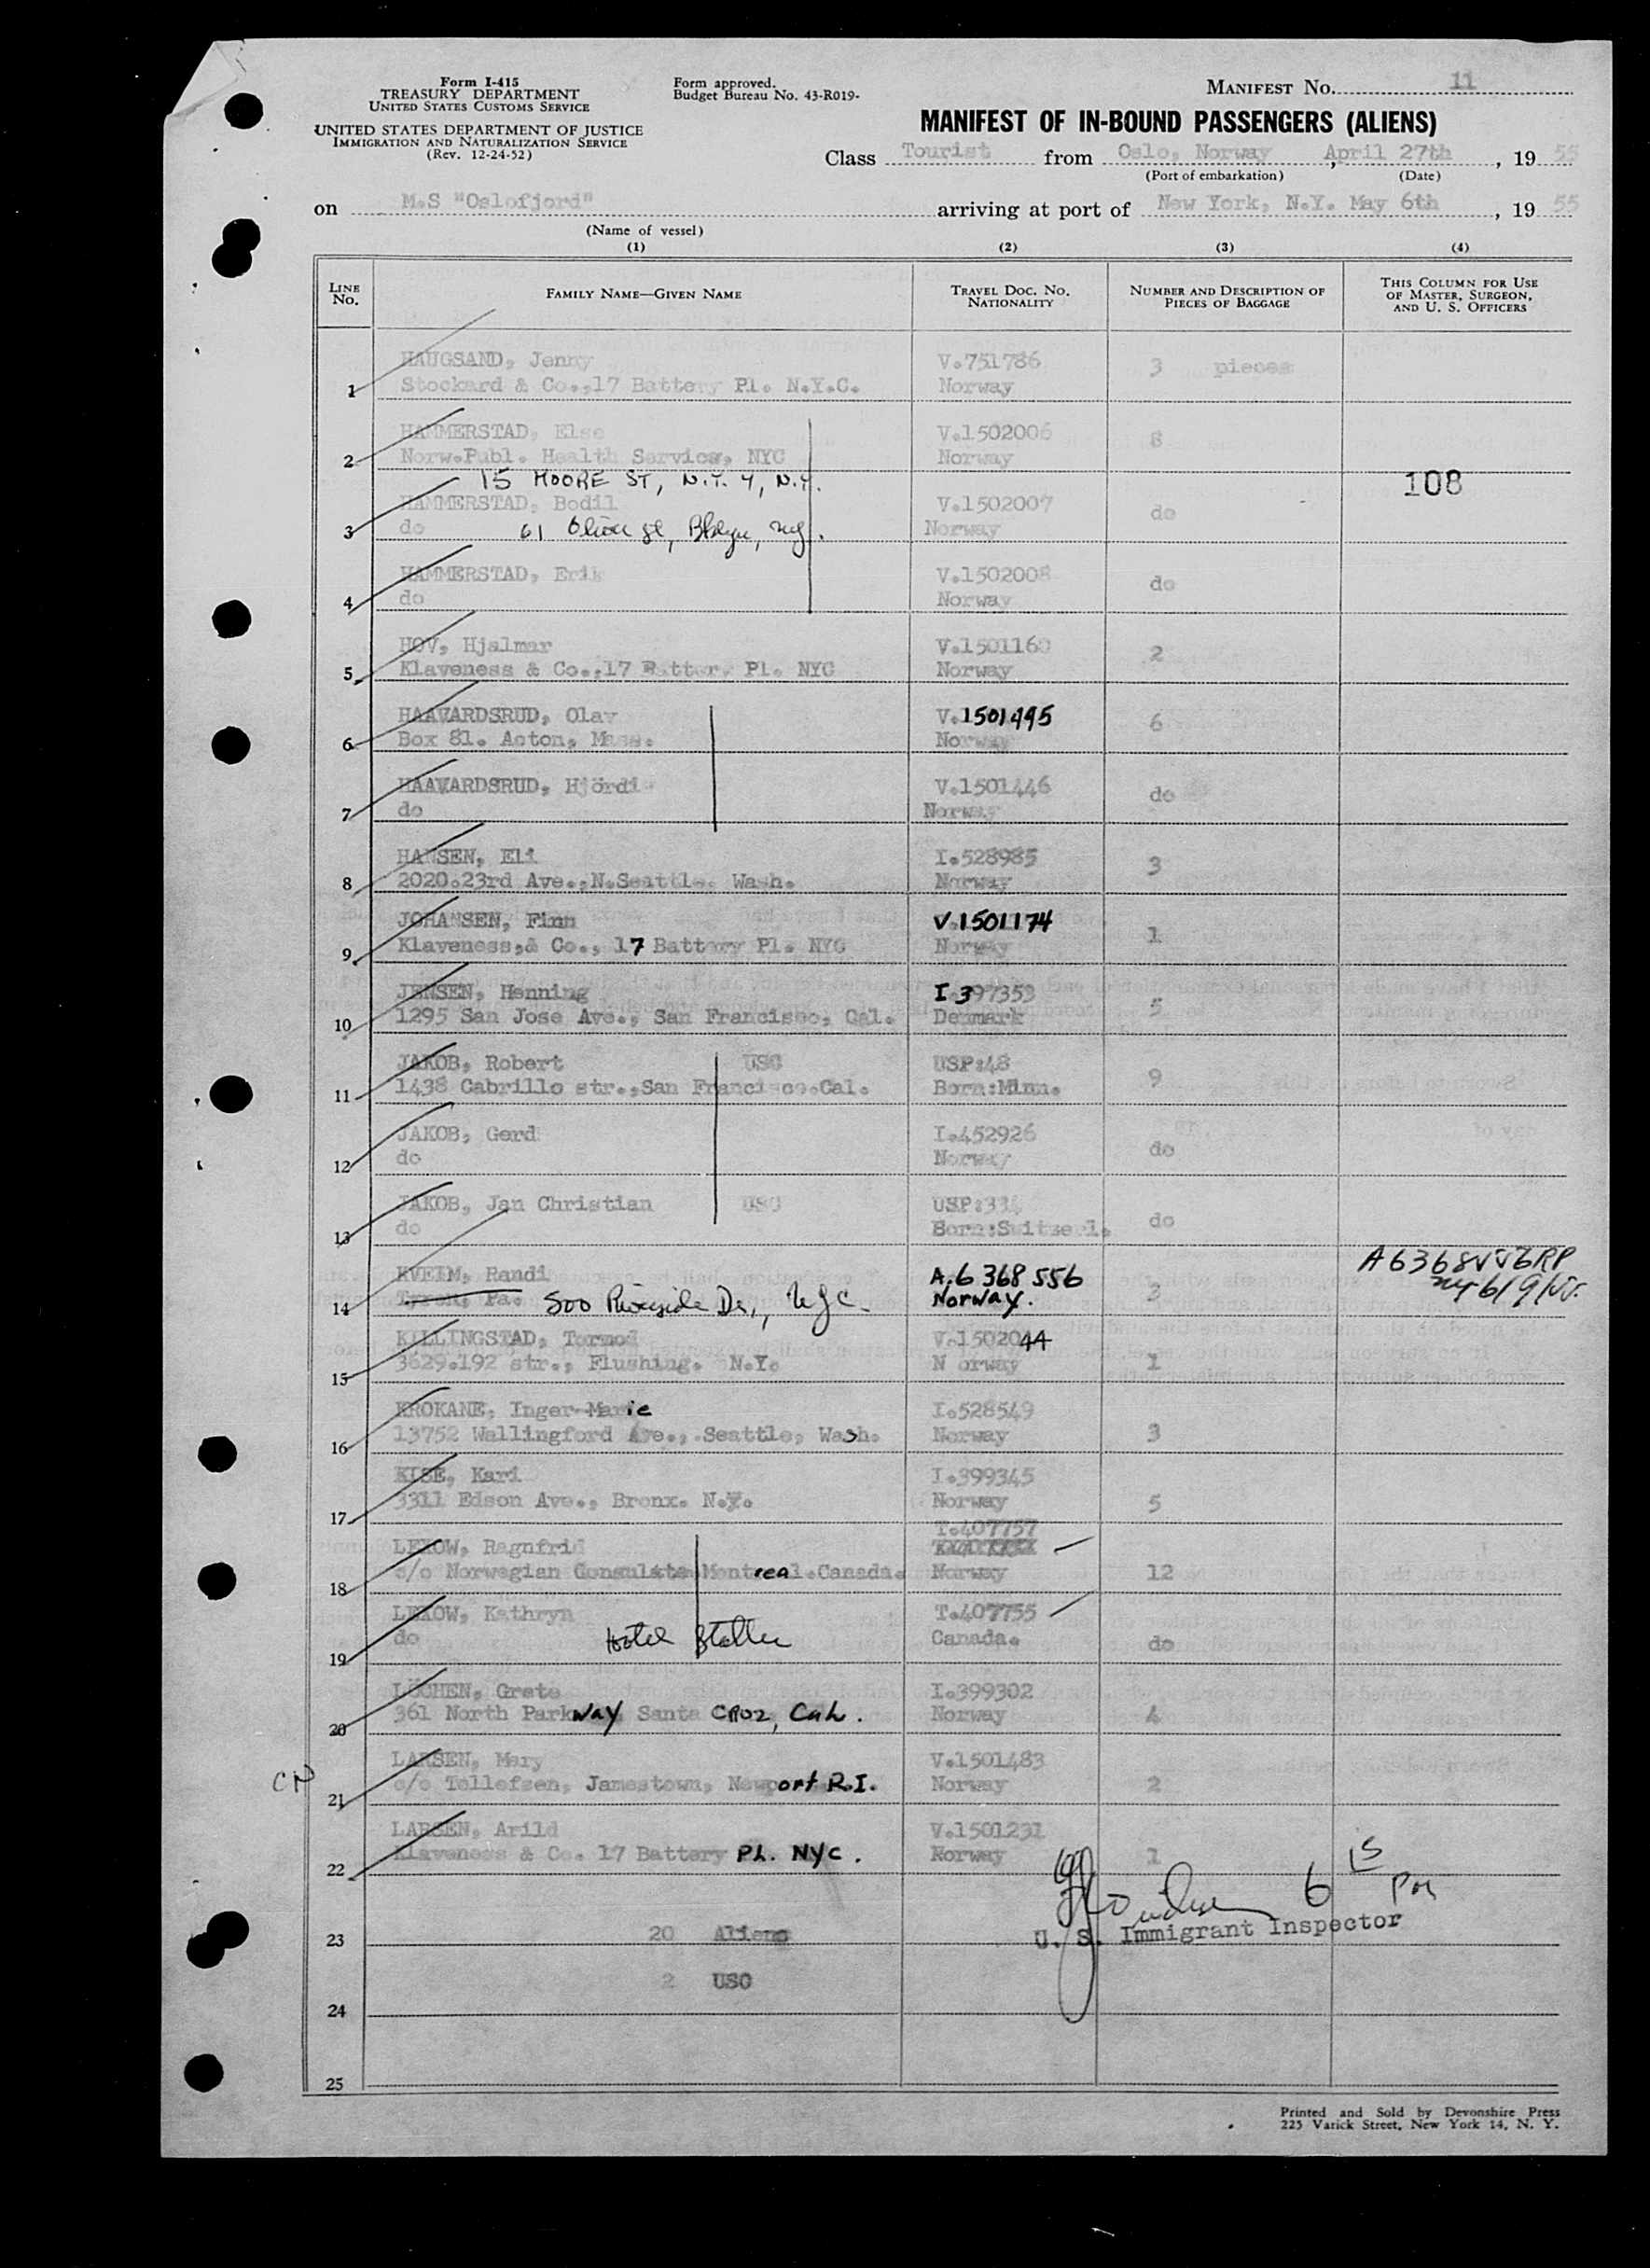 Form I-415
TREASURY DEPARTMENT
UNITED STATES CUSTOMS SERVICE
UNITED STATES DEPARTMENT OF JUSTICE
IMMIGRATION AND NATURALIZATION SERVICE
(Rev. 12-24-52)
Form approved.
Budget Bureau No. 43-R019-
MANIFEST NO. 11
MANIFEST OF IN-BOUND PASSENGERS (ALIENS)
Class Tourist from Oslo, Norway, April 27th, 1955
(Port of embarkation) (Date)
on M.S "Oslofjord" arriving at port of New York, N.Y. May 6th, 1955
(Name of vessel)
(1) (2) (3) (4)
LINE No. FAMILY NAME—GIVEN NAME TRAVEL DOC. NO. NATIONALITY NUMBER AND DESCRIPTION OF PIECES OF BAGGAGE THIS COLUMN FOR USE OF MASTER, SURGEON, AND U. S. OFFICERS
HAUGSAND, Jenny V.751786 3 pieces
1 Stockard & Co.,17 Battery Pl. N.Y.C. Norway
HAMMERSTAD, Else V.1502006 8
2 Norw.Publ. Health Service, NYC Norway
15 MOORE ST, N.Y. 4, N.Y. 108
HAMMERSTAD, Bodil V.1502007 do
3 do 61 St, Bklyn, NY. Norway
HAMMERSTAD, Erik V.1502008 do
4 do Norway
HOV, Hjalmar V.1501160 2
5 Klaveness & Co.,17 Battery Pl. NYC Norway
HAAVARDSRUD, Olav V.1501445 6
6 Box 81. Acton, Mass. Norway
HAAVARDSRUD, Hjördis V.1501446 do
7 do Norway
HANSEN, Eli I.528985 3
8 2020.23rd Ave.,N.Seattle. Wash. Norway
JOHANSEN, Finn V.1501174 1
9 Klaveness,& Co., 17 Battery Pl. NYC Norway
JENSEN, Henning I 397353 5
10 1295 San Jose Ave., San Francisco, Cal. Denmark
JAKOB, Robert USC USP:48 9
11 1438 Cabrillo str.,San Francisco.Cal. Born:Minn.
JAKOB, Gerd I.452926 do
12 do Norway
JAKOB, Jan Christian USC USP:334 do
13 do Born:Switzerl.
A6368556RP
KVEIM, Randi A.6 368 556 3 NY 6/9/55.
14 500 Riverside Dr., NYC. Norway.
KILLINGSTAD, Tormod V.1502044 1
15 3629.192 str., Flushing. N.Y. N orway
KROKANE, Inger-Marie I.528549 3
16 13752 Wallingford Ave., Seattle, Wash. Norway
KISE, Kari I.399345 5
17 3311 Edson Ave., Bronx. N.Y. Norway
T.407757
LEXOW, Ragnfrid
18 c/o Norwegian Consulate Montreal.Canada. Norway 12
LEXOW, Kathryn T.407755 do
19 do Hotel Statler Canada.
LÖCHEN, Grete I.399302 4
20 361 North Parkway Santa CRUZ, CAL. Norway
LARSEN, Mary V.1501483 2
CN
21 c/o Tollefsen, Jamestown, Newport R.I. Norway
LARSEN, Arild V.1501231 1
22 Klaveness & Co. 17 Battery PL. NYC. Norway
6 15 PM
U. S. Immigrant Inspector
23 20 Aliens
2 USC
24
25
Printed and Sold by Devonshire Press
225 Varick Street, New York 14, N. Y.